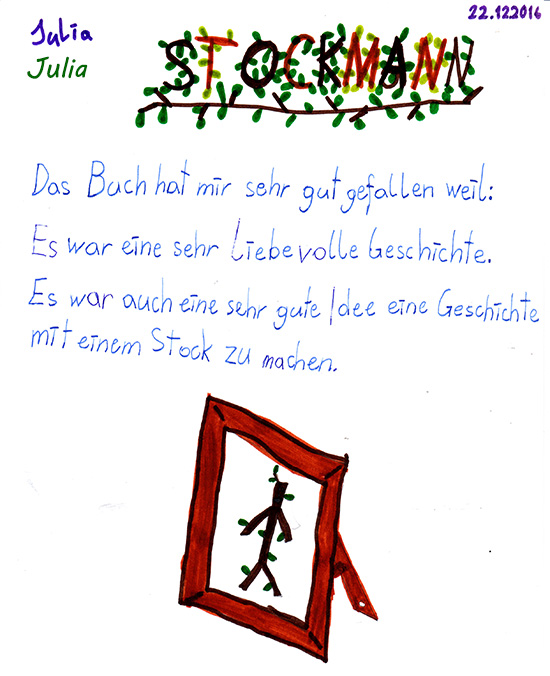 22.12.2016
Julia
Julia
STOCKMANN
Das Buch hat mir sehr gut gefallen weil:
Es war eine sehr Liebevolle Geschichte.
Es war auch eine sehr gute Idee eine Geschichte
mit einem Stock zu machen.